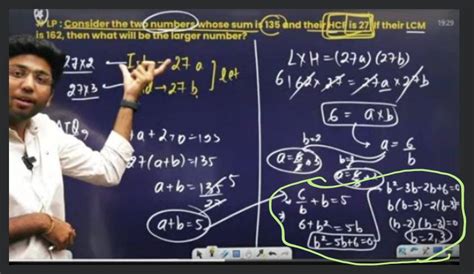 LP : Consider the two numbers whose sum is 135 and their HCF is 27. If their LCM
is 162, then what will be the larger number?
19:29
27×2
27a
27×3
27b
let
L×H = (27a)(27b)
6 162×27 = 27a×27b
6 = a×b
a = 6/b
27(a+b)=135
a+b = 135/27 5
a+b=5
b=2
6/b + b = 5
6+b²=5b
b²-5b+6=0
b²-3b-2b+6=0
b(b-3)-2(b-3)=0
(b-2)(b-3)=0
b=2,3